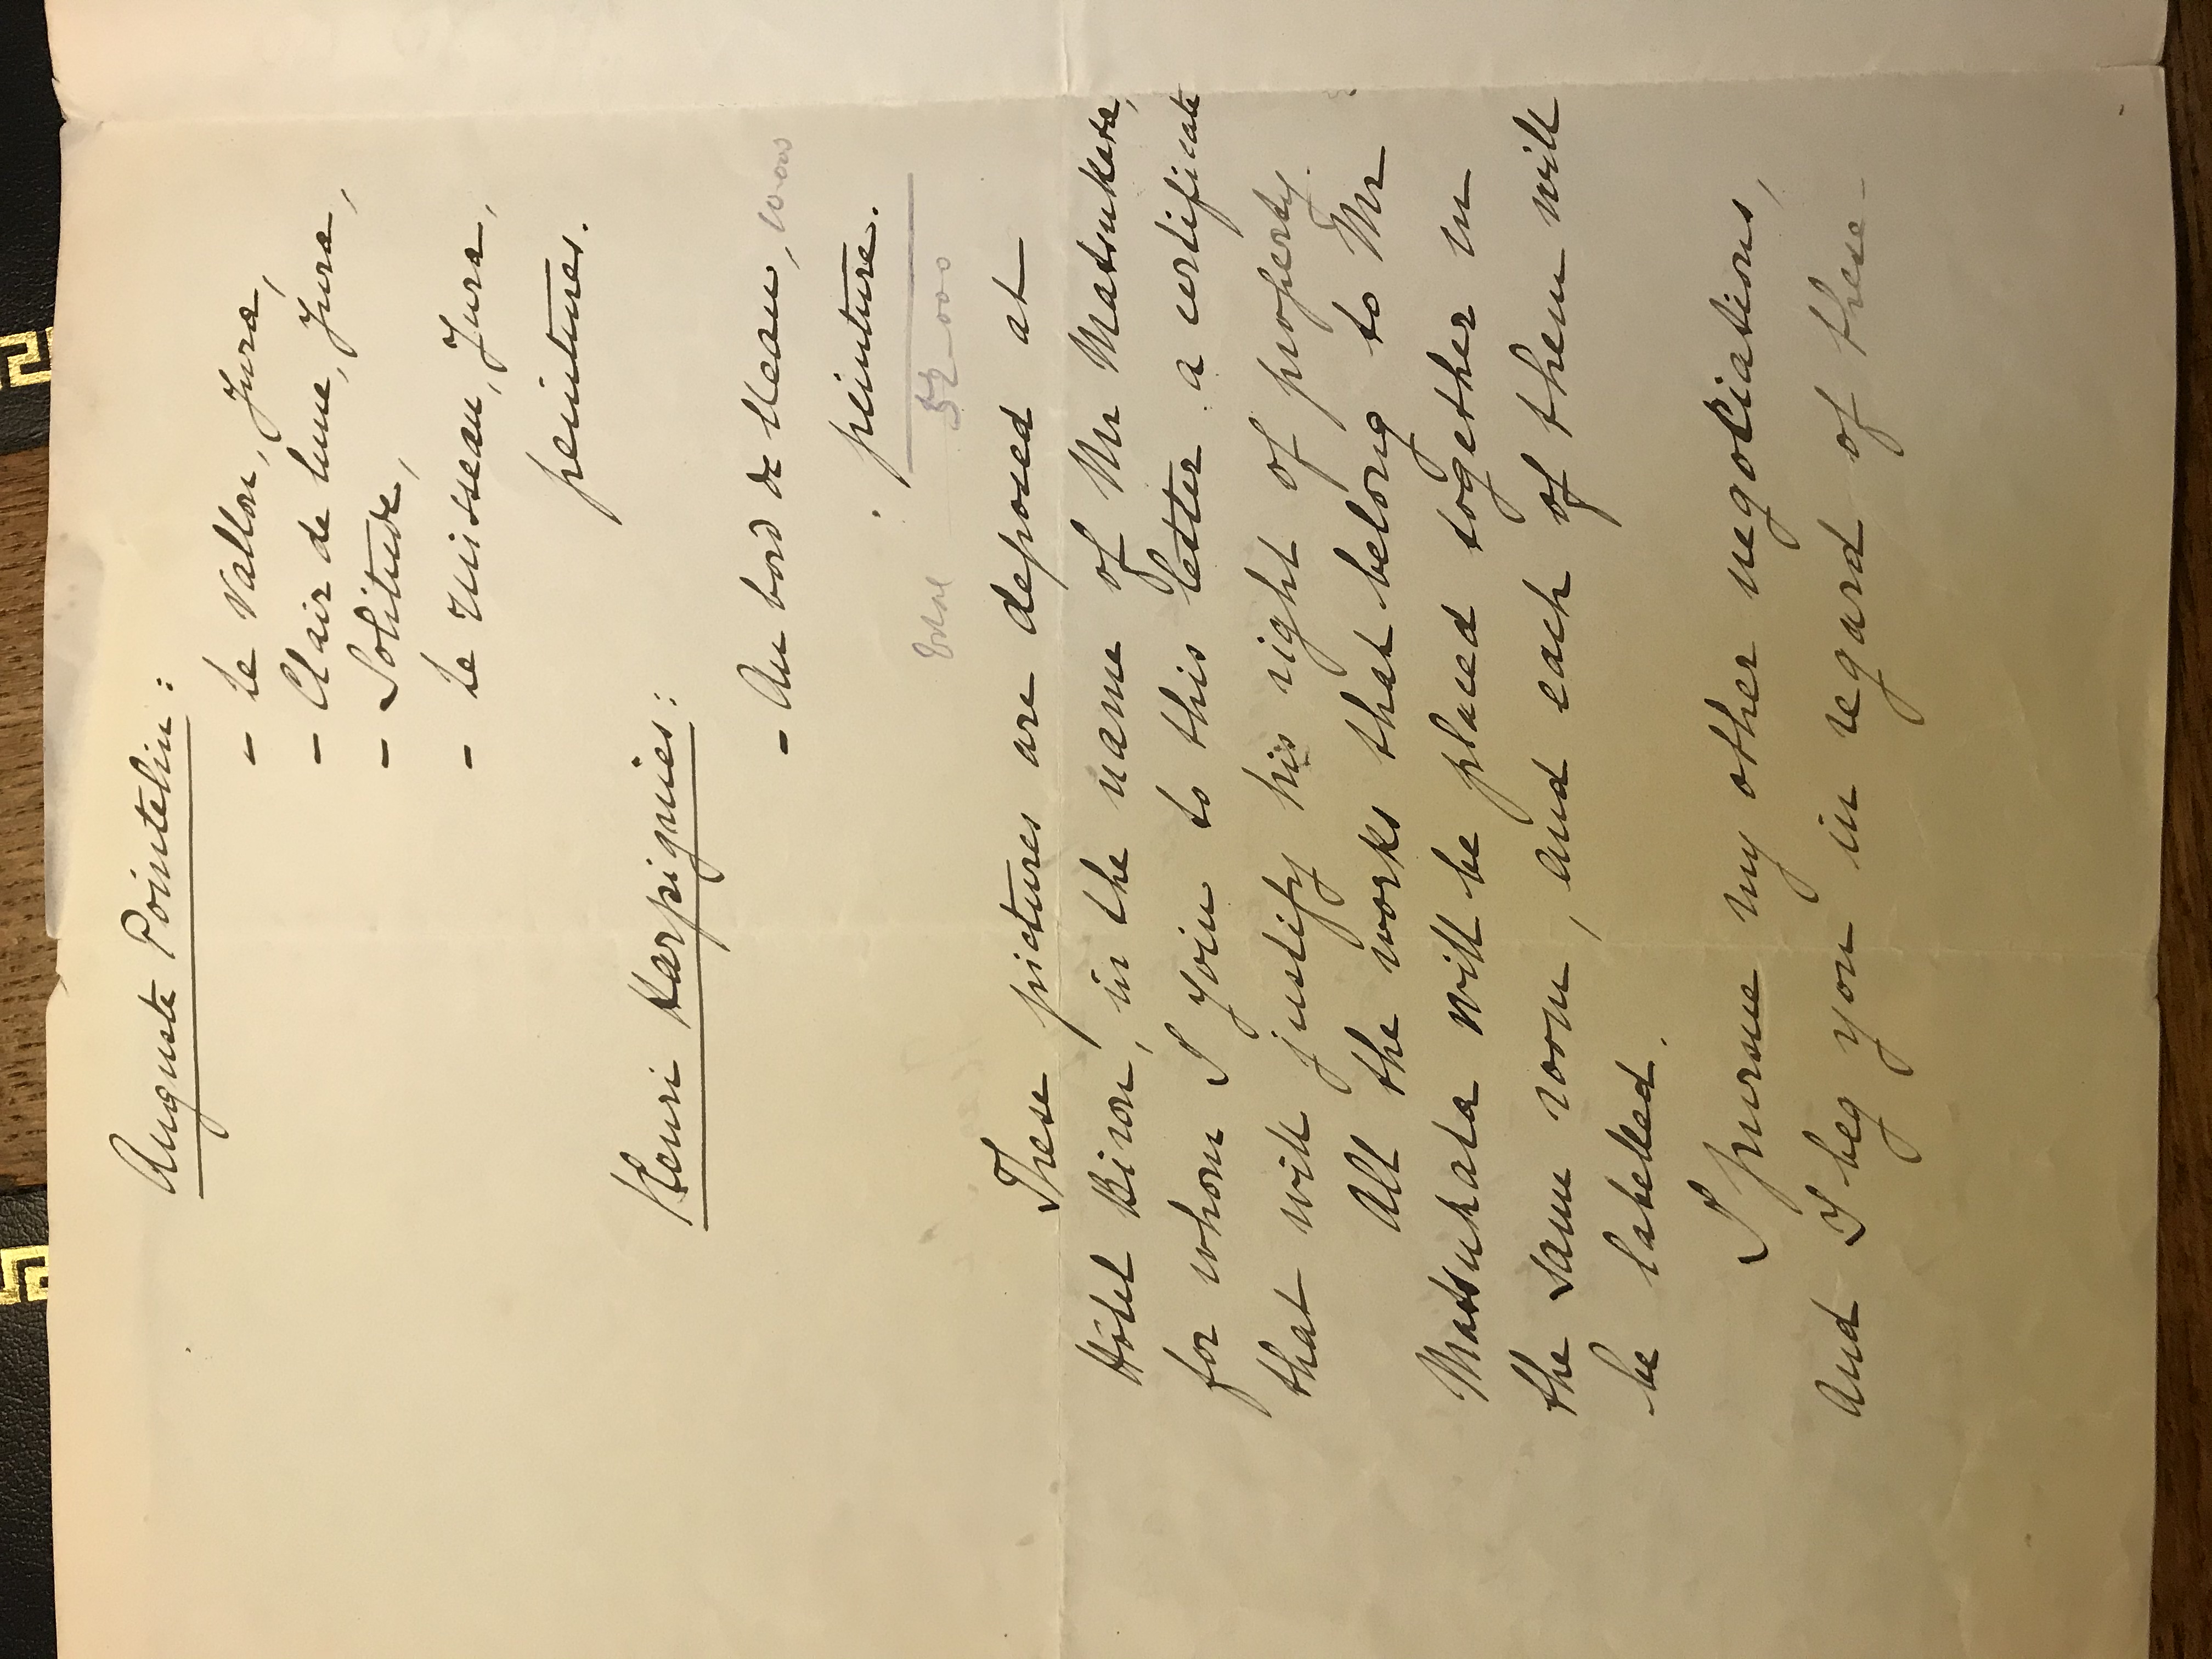 Auguste Pointelin :
- Le Vallon, Jura,
- Clair de lune, Jura,
- Solitude,
- Le ruisseau, Jura,
peintures.
Henri Harpignies :
- Au bord de l'eau, 10000
peinture.
Total 52000
These pictures are deposed at
Hôtel Biron, in the name of Mr Matsukata,
for whom I join to this letter a certificate
that will justify his right of property.
All the works that belong to Mr
Matsukata will be placed together in
the same room, and each of them will
be labelled.
I pursue my other negotiations,
and I beg you in regard of these